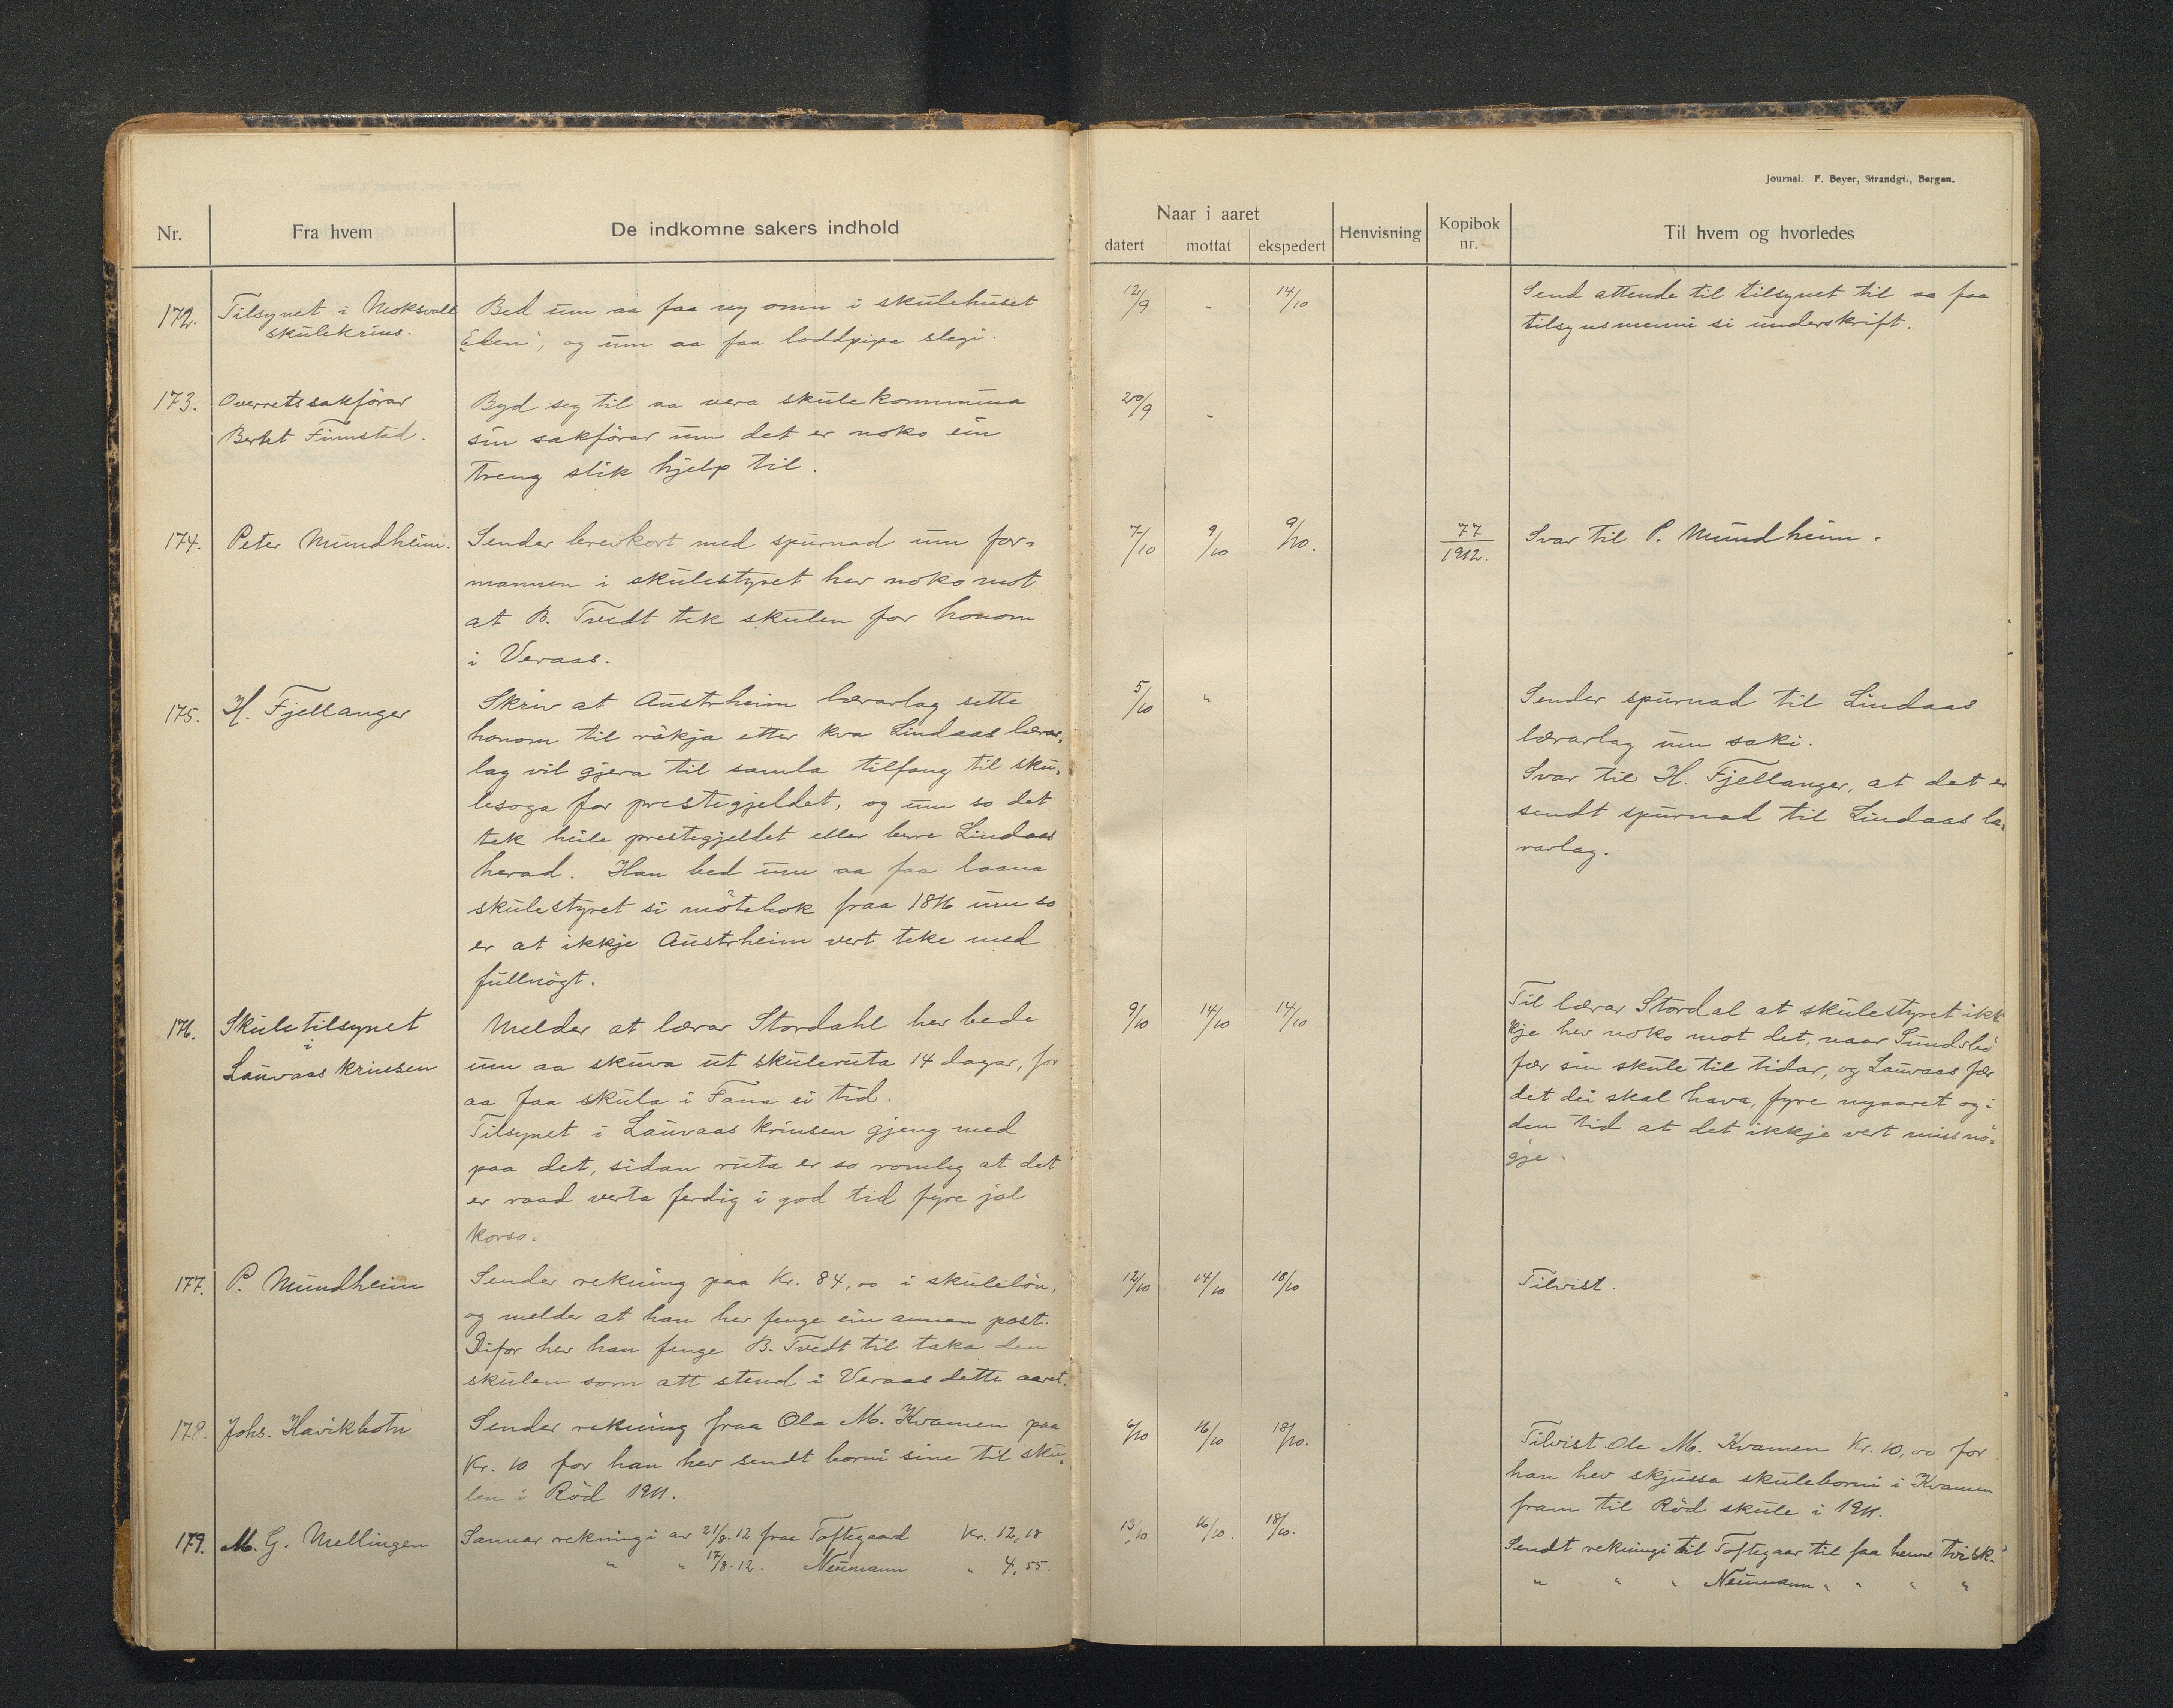 Journal. F. Beyer, Strandgt., Bergen.
Nr. Fra hvem De indkomne sakers indhold
Naar i aaret
datert mottat ekspedert Henvisning Kopibok nr. Til hvem og hvorledes
172. Tilsynet i Moksvall
skulekrins.
Bed um aa faa ny omn i skulehuset
"Eben", og um aa faa loddpipa slegi.
12/9 " 14/10
Send attende til tilsynet til aa faa
tilsynsmenni si underskrift.
173. Overretssakførar
Berket Finnstad.
Byd seg til aa vera skulekommuna
sin sakførar um det er noko ein
treng slik hjelp til.
20/9 "
174. Peter Mundheim.
Sender brevkort med spurnad um for-
mannen i skulestyret hev noko mot
at B. Tvedt tek skulen for honom
i Veraas.
7/10 9/10 9/10.
77
1912.
Svar til P. Mundheim.
175. H. Fjellanger
Skriv at Austrheim lærarlag sette
honom til røkja etter kva Lindaas lærar-
lag vil gjera til samla tilfang til sku-
lesoga for prestegjeldet, og um so det
tek heile prestegjeldet eller berre Lindaas
herad. Han bed um aa faa laana
skulestyret si møtebok fraa 1816 um so
er at ikkje Austrheim vert teke med
fullnøgt.
5/10 "
Sender spurnad til Lindaas
lærarlag um saki.
Svar til H. Fjellanger, at det er
sendt spurnad til Lindaas læ-
rarlag.
176. Skuletilsynet
i
Lauvaas krinsen
Melder at lærar Stordahl hev bede
um aa skuva ut skuleruta 14 dagar, for
aa faa skula i Fana ei tid.
Tilsynet i Lauvaas krinsen gjeng med
paa det, sidan ruta er so romleg at det
er raad verta ferdig i god tid fyre jol
korso.
9/10 14/10 14/10
Til lærar Stordal at skulestyret ikk-
kje hev noko mot det, naar Sundsbø
fær sin skule til tidar, og Lauvaas fær
det dei skal hava, fyre nyaaret og i
den tid at det ikkje vert missnø-
gje.
177. P. Mundheim
Sender rekning paa Kr. 84,00 i skuleløn,
og melder at han hev fenge ein annan post.
Difor hev han fenge B. Tvedt til taka den
skulen som att stend i Veraas dette aaret.
12/10 14/10 18/10
Tilvist.
178. Johs. Havikbotn
Sender rekning fraa Ola M. Kvamen paa
Kr. 10 for han hev sendt borni sine til sku-
len i Rød 1911.
6/10 16/10 18/10.
Tilvist Ole M. Kvamen Kr. 10,00 for
han hev skjussa skuleborni i Kvamen
fram til Rød skule i 1911.
179. M. G. Mellingen
Sannar rekningi av 21/8.12 fraa Toftegaard Kr. 12,18
" " 17/8.12. Neumann " 4,55.
13/10 16/10. 18/10.
Sendt rekningi til Toftegaar til faa henne tvisk.
" " " Neumann " " " "